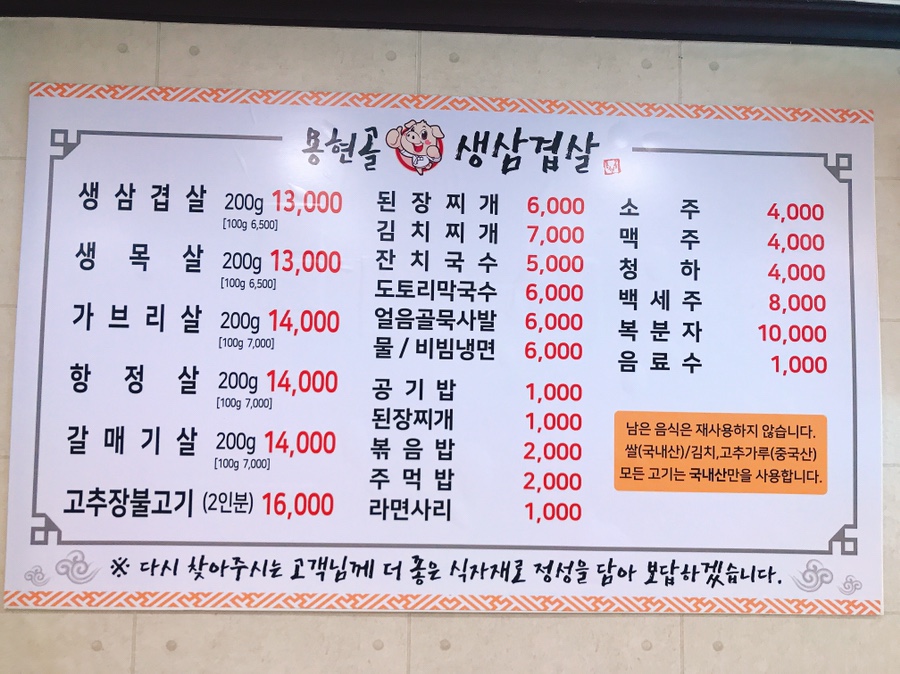 용현골 생삼겹살
생삼겹살 200g 13,000
[100g 6,500]
생목살 200g 13,000
[100g 6,500]
가브리살 200g 14,000
[100g 7,000]
항정살 200g 14,000
[100g 7,000]
갈매기살 200g 14,000
[100g 7,000]
고추장불고기 (2인분) 16,000
된장찌개 6,000
김치찌개 7,000
잔치국수 5,000
도토리막국수 6,000
얼음골묵사발 6,000
물 / 비빔냉면 6,000
공기밥 1,000
된장찌개 1,000
볶음밥 2,000
주먹밥 2,000
라면사리 1,000
소주 4,000
맥주 4,000
청하 4,000
백세주 8,000
복분자 10,000
음료수 1,000
남은 음식은 재사용하지 않습니다.
쌀(국내산)/김치,고추가루(중국산)
모든 고기는 국내산만을 사용합니다.
※ 다시 찾아주시는 고객님께 더 좋은 식자재로 정성을 담아 보답하겠습니다.